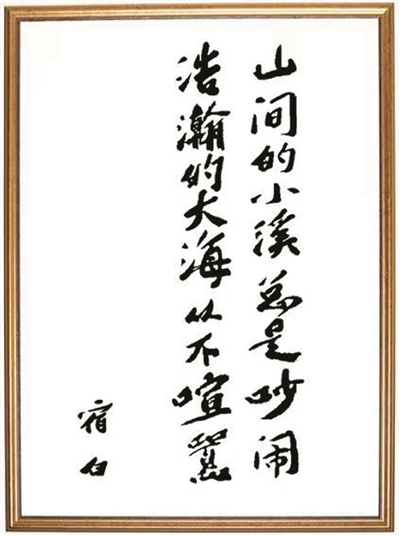 山间的小溪总是吵闹
浩瀚的大海从不喧嚣
宿白